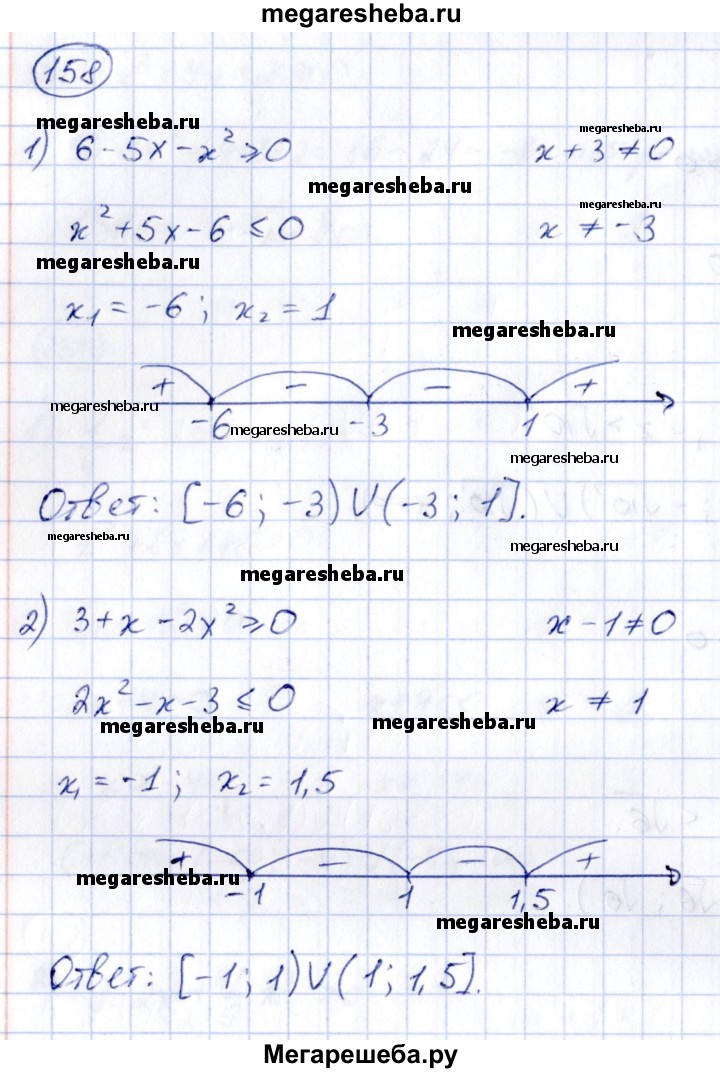 megaresheba.ru
158
megaresheba.ru
megaresheba.ru
1) 6 - 5x - x² ⩾ 0 x + 3 ≠ 0
megaresheba.ru
megaresheba.ru
x² + 5x - 6 ≤ 0 x ≠ -3
megaresheba.ru
x₁ = -6 ; x₂ = 1
megaresheba.ru
+ − − +
megaresheba.ru
-6 megaresheba.ru -3 1
megaresheba.ru
Ответ: [-6 ; -3) U (-3 ; 1].
megaresheba.ru
megaresheba.ru
megaresheba.ru
2) 3 + x - 2x² ⩾ 0 x - 1 ≠ 0
2x² - x - 3 ≤ 0 x ≠ 1
megaresheba.ru
megaresheba.ru
x₁ = -1 ; x₂ = 1,5
+ − − +
megaresheba.ru
-1 1 1,5
megaresheba.ru
Ответ: [-1 ; 1) U (1 ; 1,5].
Мегарешеба.ру